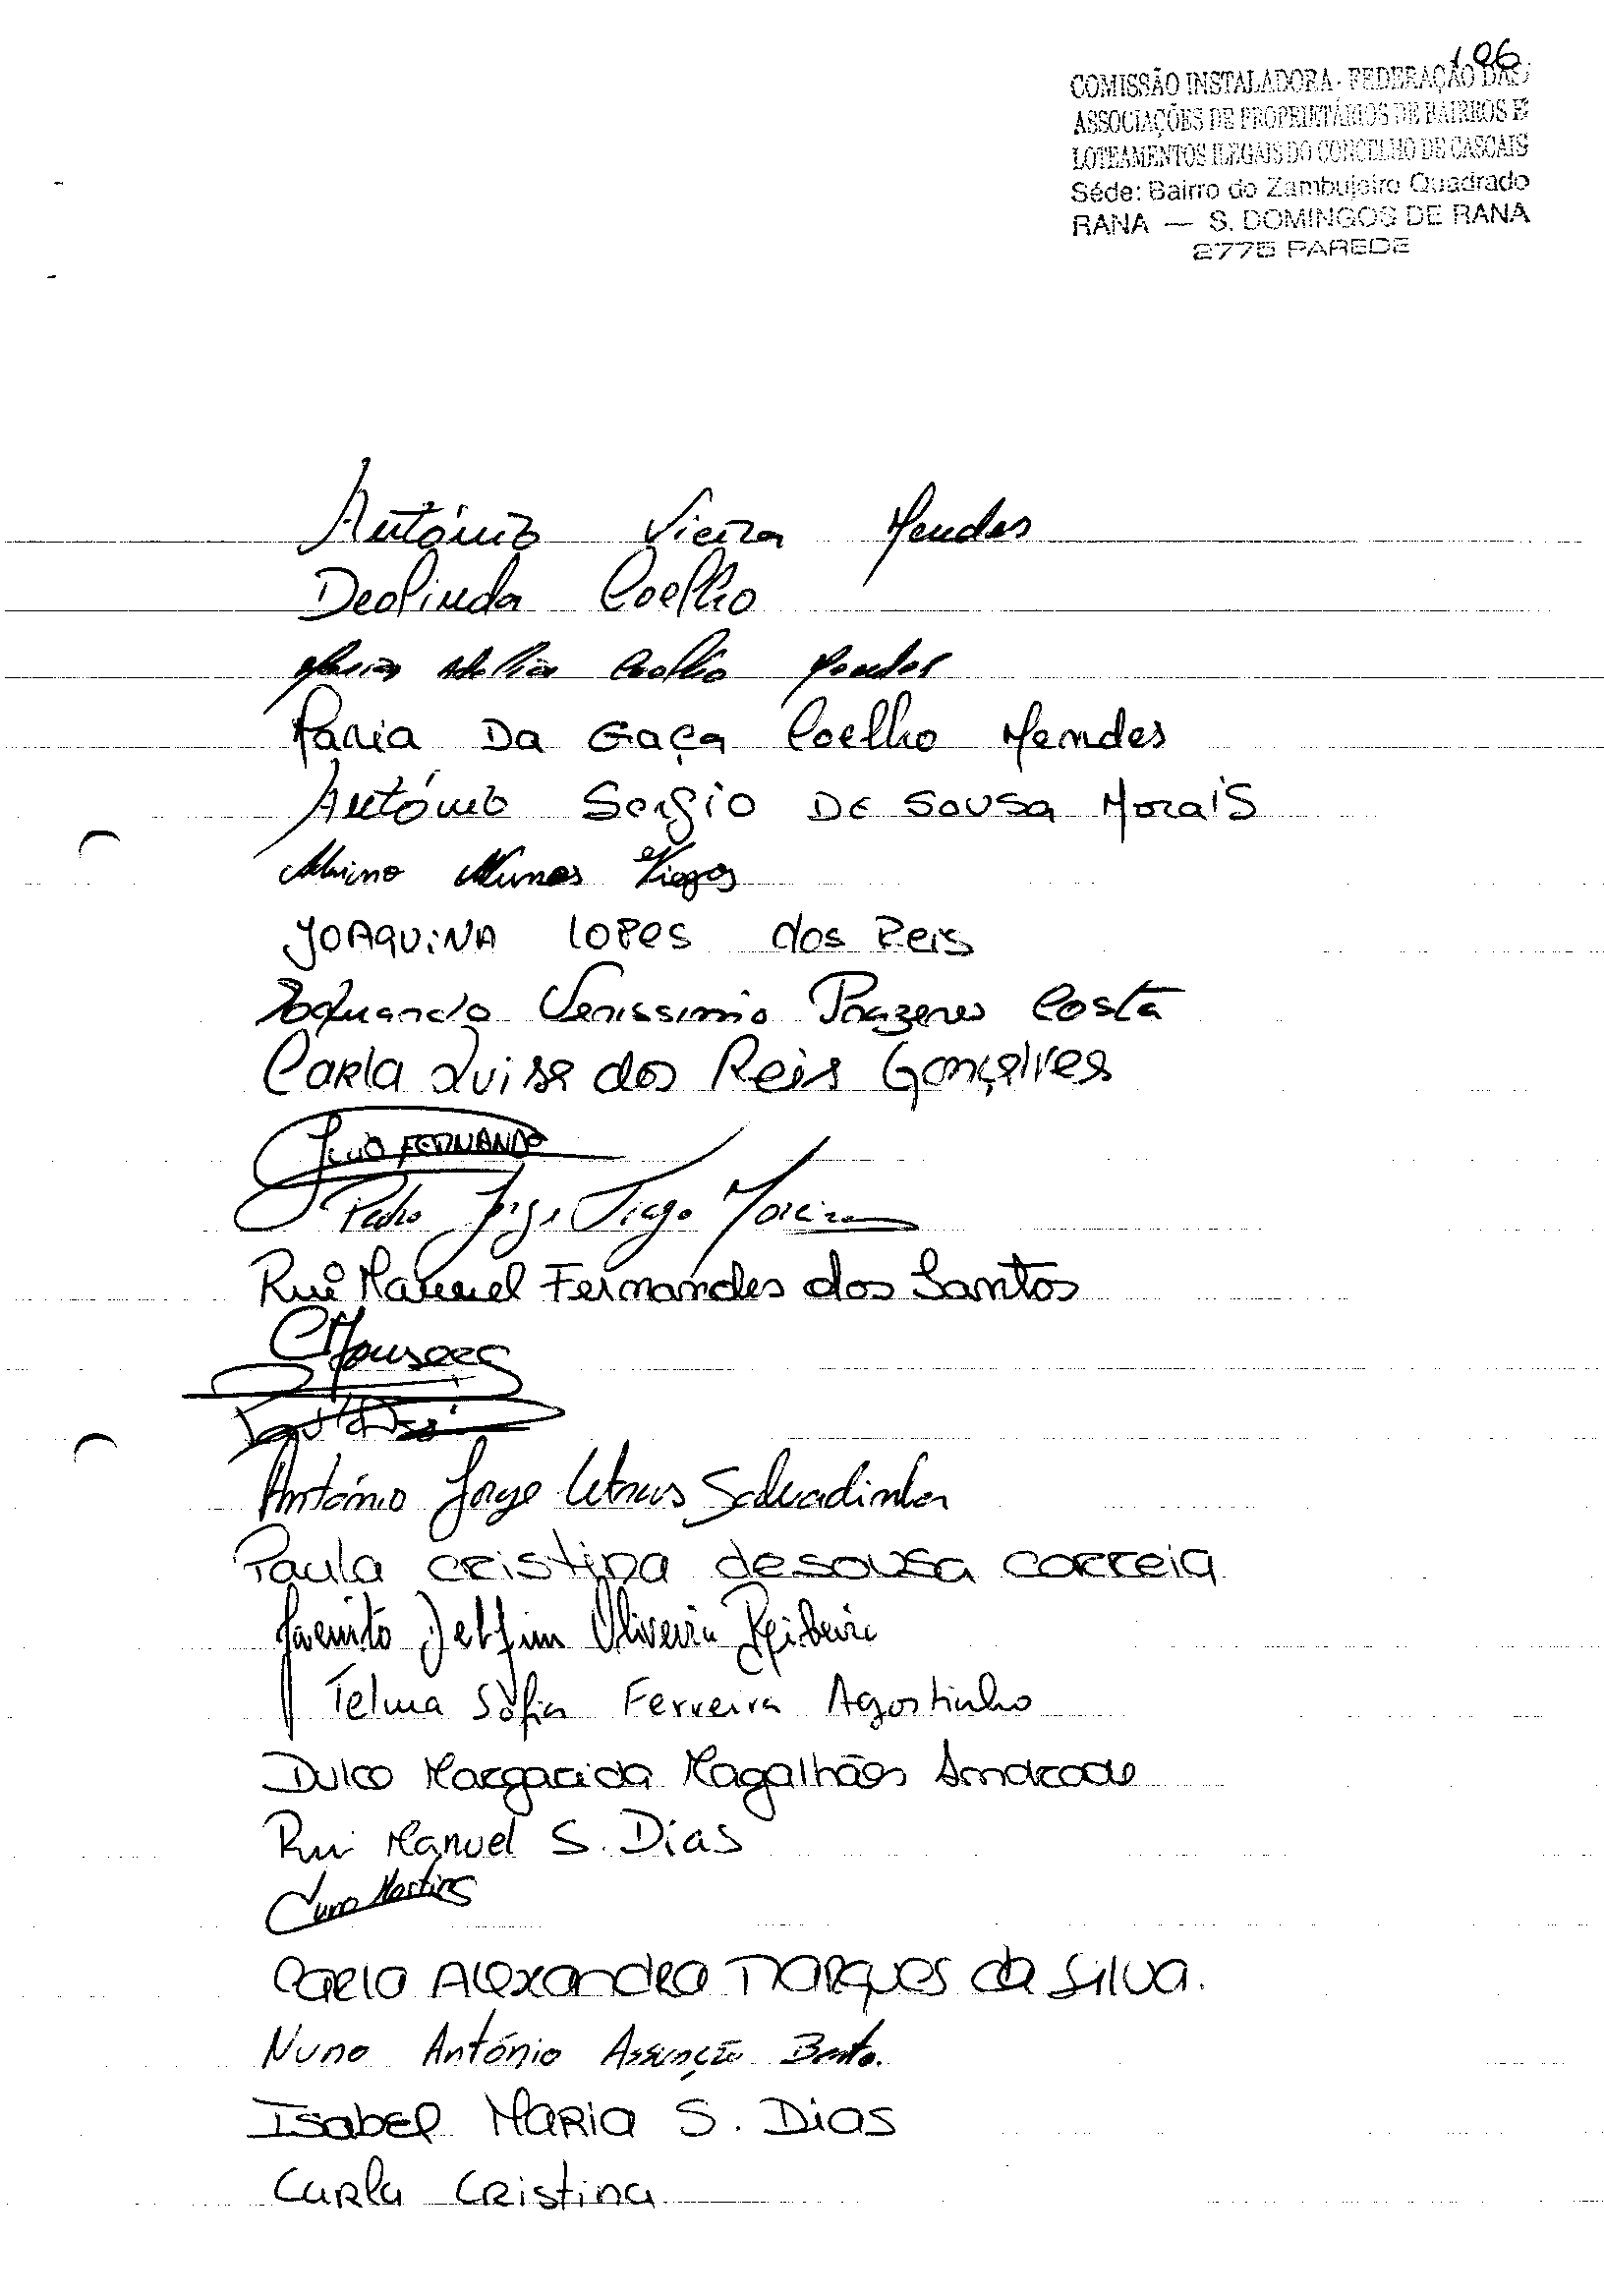 106
COMISSÃO INSTALADORA - FEDERAÇÃO DAS
ASSOCIAÇÕES DE PROPRIETÁRIOS DE BAIRROS E
LOTEAMENTOS ILEGAIS DO CONCELHO DE CASCAIS
Séde: Bairro do Zambujeiro Quadrado
RANA — S. DOMINGOS DE RANA
2775 PAREDE
António Vieira Mendes
Deolinda Coelho
Maria Adelia Coelho Mendes
Maria Da Gaça Coelho Mendes
António Sergio De Sousa Morais
Nunes
JOAQUINA LOPES dos Reis
Verissimo Prazeres Costa
Carla Luisa dos Reis Gonçalves
FERNANDO
Pedro Jorge Tiago Moreira
Rui Manuel Fernandes dos Santos
CMFonseca
António Jorge Salvadinha
Paula cristina de sousa correia
Delfim Oliveira Ribeiro
Telma Sofia Ferreira Agostinho
Dulce Margarida Magalhães Andrade
Rui Manuel S. Dias
Nuno Martins
Carla Alexandra Marques da Silva.
Nuno António Assunção Bento.
Isabel Maria S. Dias
Carla Cristina